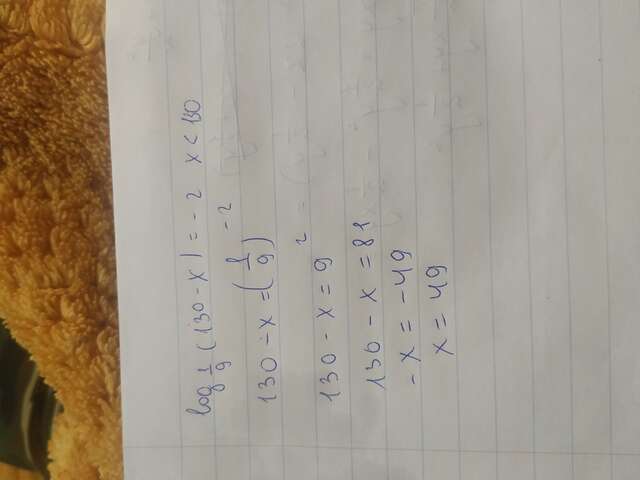 log 1/9 (130 - x) = -2 x < 130
130 - x = (1/9)^-2
130 - x = 9^2
130 - x = 81
- x = -49
x = 49